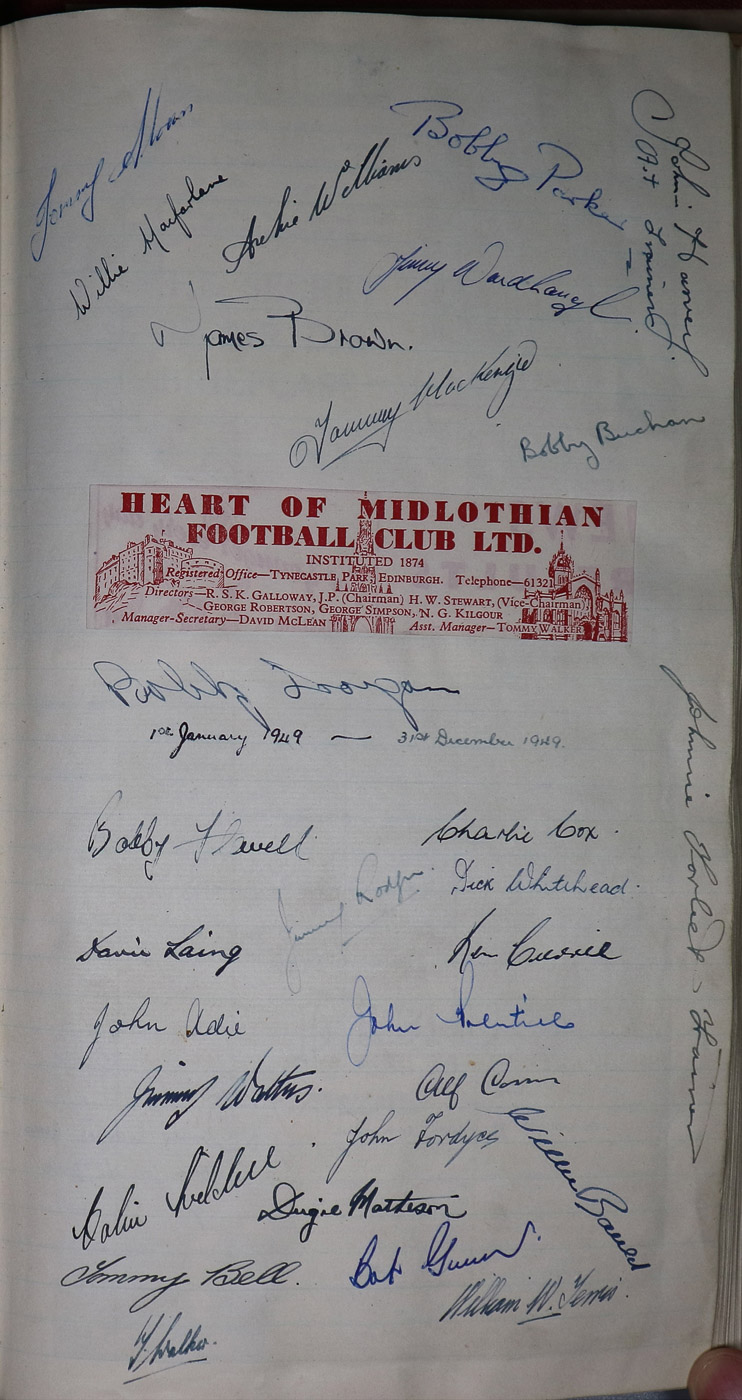 Tommy Sloan
Willie Macfarlane
Archie Williams
Bobby Parker
John Harvey
Ast Trainer
Jimmy Wardhaugh
James Brown.
Tommy MacKenzie
Bobby Buchan
HEART OF MIDLOTHIAN
FOOTBALL CLUB LTD.
INSTITUTED 1874
Registered Office—TYNECASTLE PARK, EDINBURGH. Telephone—61321
Directors—R. S. K. GALLOWAY, J.P. (Chairman) H. W. STEWART, (Vice-Chairman),
GEORGE ROBERTSON, GEORGE SIMPSON, N. G. KILGOUR
Manager-Secretary—DAVID MCLEAN Asst. Manager—TOMMY WALKER
Bobby Dougan
1st January 1949 — 31st December 1949.
Bobby Flavell
Charlie Cox.
Jimmy Rodger
Dick Whitehead.
Davie Laing
Ken Currie
John Adie
John Prentice
Jimmy Wattus.
Alf Conn
John Fordyce
Willie Bauld
Colin Liddell
Dugie Matheson
Tommy Bell.
Bob
William W. Ferris.
T. Walker.
Johnnie Torbet - Trainer